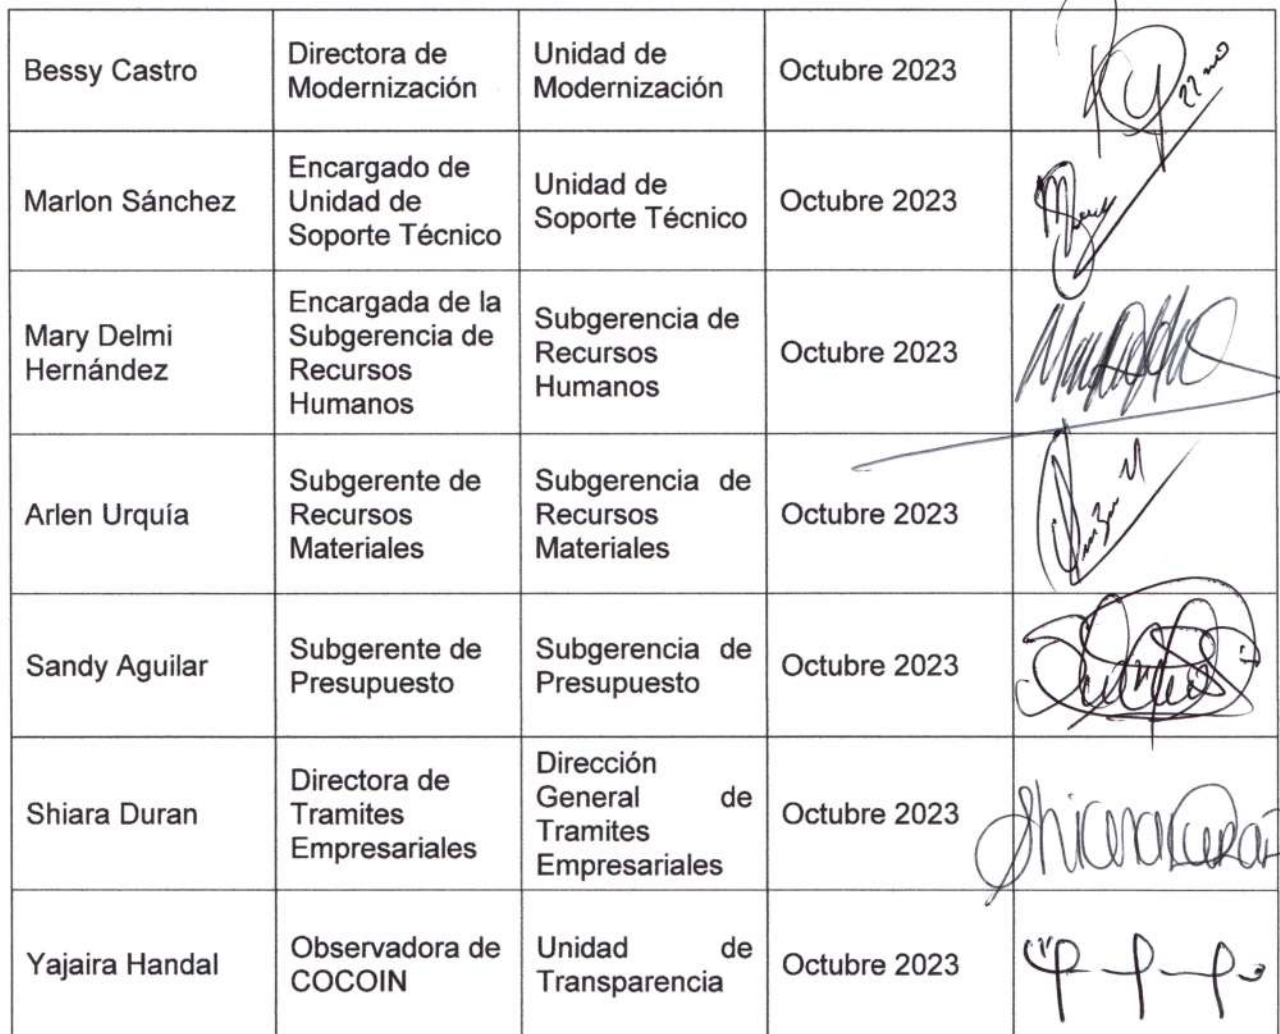 Bessy Castro
Directora de
Modernización
Unidad de
Modernización
Octubre 2023
Marlon Sánchez
Encargado de
Unidad de
Soporte Técnico
Unidad de
Soporte Técnico
Octubre 2023
Mary Delmi
Hernández
Encargada de la
Subgerencia de
Recursos
Humanos
Subgerencia de
Recursos
Humanos
Octubre 2023
Arlen Urquía
Subgerente de
Recursos
Materiales
Subgerencia de
Recursos
Materiales
Octubre 2023
Sandy Aguilar
Subgerente de
Presupuesto
Subgerencia de
Presupuesto
Octubre 2023
Shiara Duran
Directora de
Tramites
Empresariales
Dirección
General de
Tramites
Empresariales
Octubre 2023
Yajaira Handal
Observadora de
COCOIN
Unidad de
Transparencia
Octubre 2023